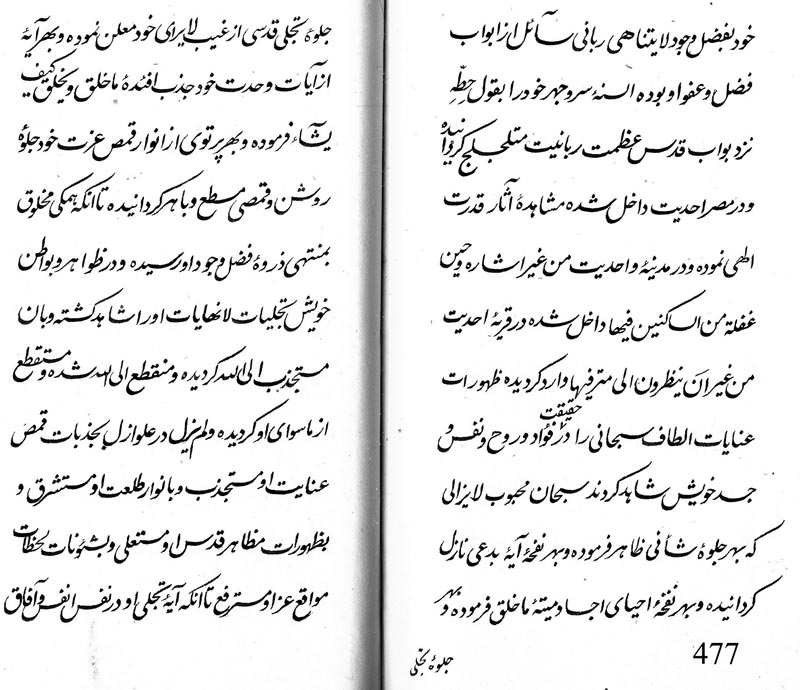 خود بفضل وجود لا یتناهی ربانی سآئل از ابواب
فضل و عفو او بوده السنهٔ سر و جهر خود را بقول حطّهِ
نزد بواب قدس عظمت ربانیت متلجلج گردانیده
و در مصر احدیت داخل شده مشاهدهٔ آثار قدرت
الهی نموده و در مدینهٔ واحدیت من غیر اشاره و حین
غفلة من الساکنین فیها داخل شده در قریهٔ احدیت
من غیر ان ینظرون الی مترفیها وارد گردیده ظهورات
عنایات الطاف سبحانی را در حقیقت فواد و روح و نفس و
جسد خویش شاهد کردند سبحان محبوب لا یزالی
که بهر جلوهٔ شأنی ظاهر فرموده و بهر نفخهٔ آیهٔ بدعی نازل
گردانیده و بهر نفخهٔ احیای اجساد میتهٔ ما خلق فرموده و بهر
جلوهٔ تجلی
477
جلوهٔ تجلی قدسی از غیب لا یرای خود معلن نموده و بهر آیهٔ
از آیات وحدت خود جذب افئدهٔ ما خلق و یخلق کیف
یشآء فرموده و بهر پرتوی از انوار قمص عزت خود جلوهٔ
روشن و قمصی مسطع و باهر گردانیده تا آنکه همگی مخلوق
بمنتهی ذروهٔ فضل وجود او رسیده و در ظواهر و بواطن
خویش تجلیات لا نهایات او را شاهد گشته و بان
مستجذب الی الله گردیده و منقطع الی الله شده و مستقطع
از ماسوای او گردیده و لم یزل در علو ازل بجذبات قمص
عنایت او مستجذب و بانوار طلعت او مستشرق و
بظهورات مظاهر قدس او مستعلی و بشئونات لحظات
مواقع عز او مسترفع تا آنکه آیهٔ تجلی او در نفس انفس و آفاق